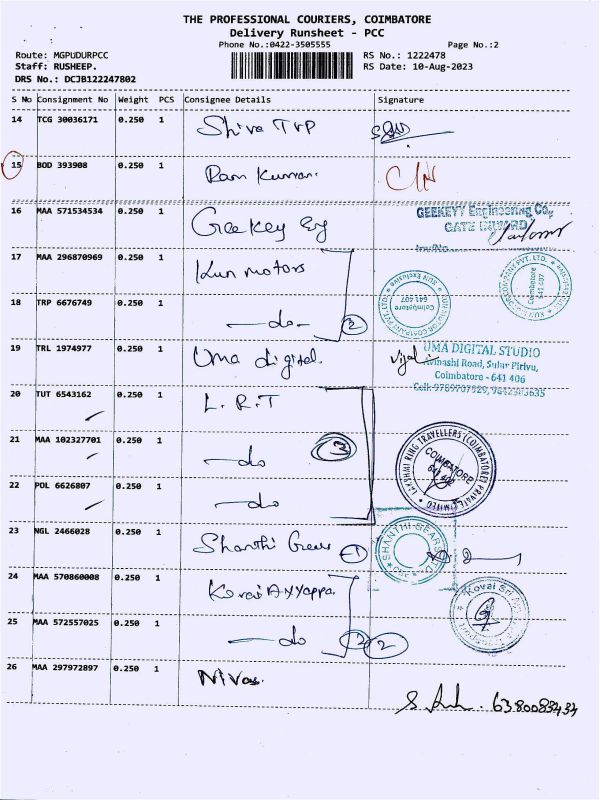 THE PROFESSIONAL COURIERS, COIMBATORE
Delivery Runsheet - PCC
Phone No.:0422-3505555 Page No.:2
Route: MGPUDURPCC RS No.: 1222478
Staff: RUSHEEP. RS Date: 10-Aug-2023
DRS No.: DCJB122247802
S No Consignment No Weight PCS Consignee Details Signature
14 TCG 30036171 0.250 1 Shiva TVP
15 BOD 393908 0.250 1 Ram Kumar.
16 MAA 571534534 0.250 1 Geekey Eng
GEEKEYY Engineering Co,
GATE INWARD
17 MAA 296870969 0.250 1 Kun motors
18 TRP 6676749 0.250 1 —do— 2
Coimbatore
641 407
19 TRL 1974977 0.250 1 Uma digital.
UMA DIGITAL STUDIO
Avinashi Road, Sular Pirivu,
Coimbatore - 641 406
20 TUT 6543162 0.250 1 L.R.T
21 MAA 102327701 0.250 1 —do 3
22 PDL 6626807 0.250 1 —do
LAKSHMI RING TRAVELLERS (COIMBATORE) PRIVATE LIMITED
COIMBATORE
23 NGL 2466028 0.250 1 Shanthi Gears 1
SHANTHI GEARS LTD
24 MAA 570860008 0.250 1 Kovai Ayyappa
25 MAA 572557025 0.250 1 —do 2 2
Kovai Sri
26 MAA 297972897 0.250 1 Nivas.